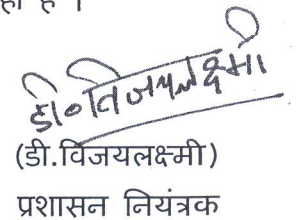 डी॰विजयलक्ष्मी
(डी.विजयलक्ष्मी)
प्रशासन नियंत्रक